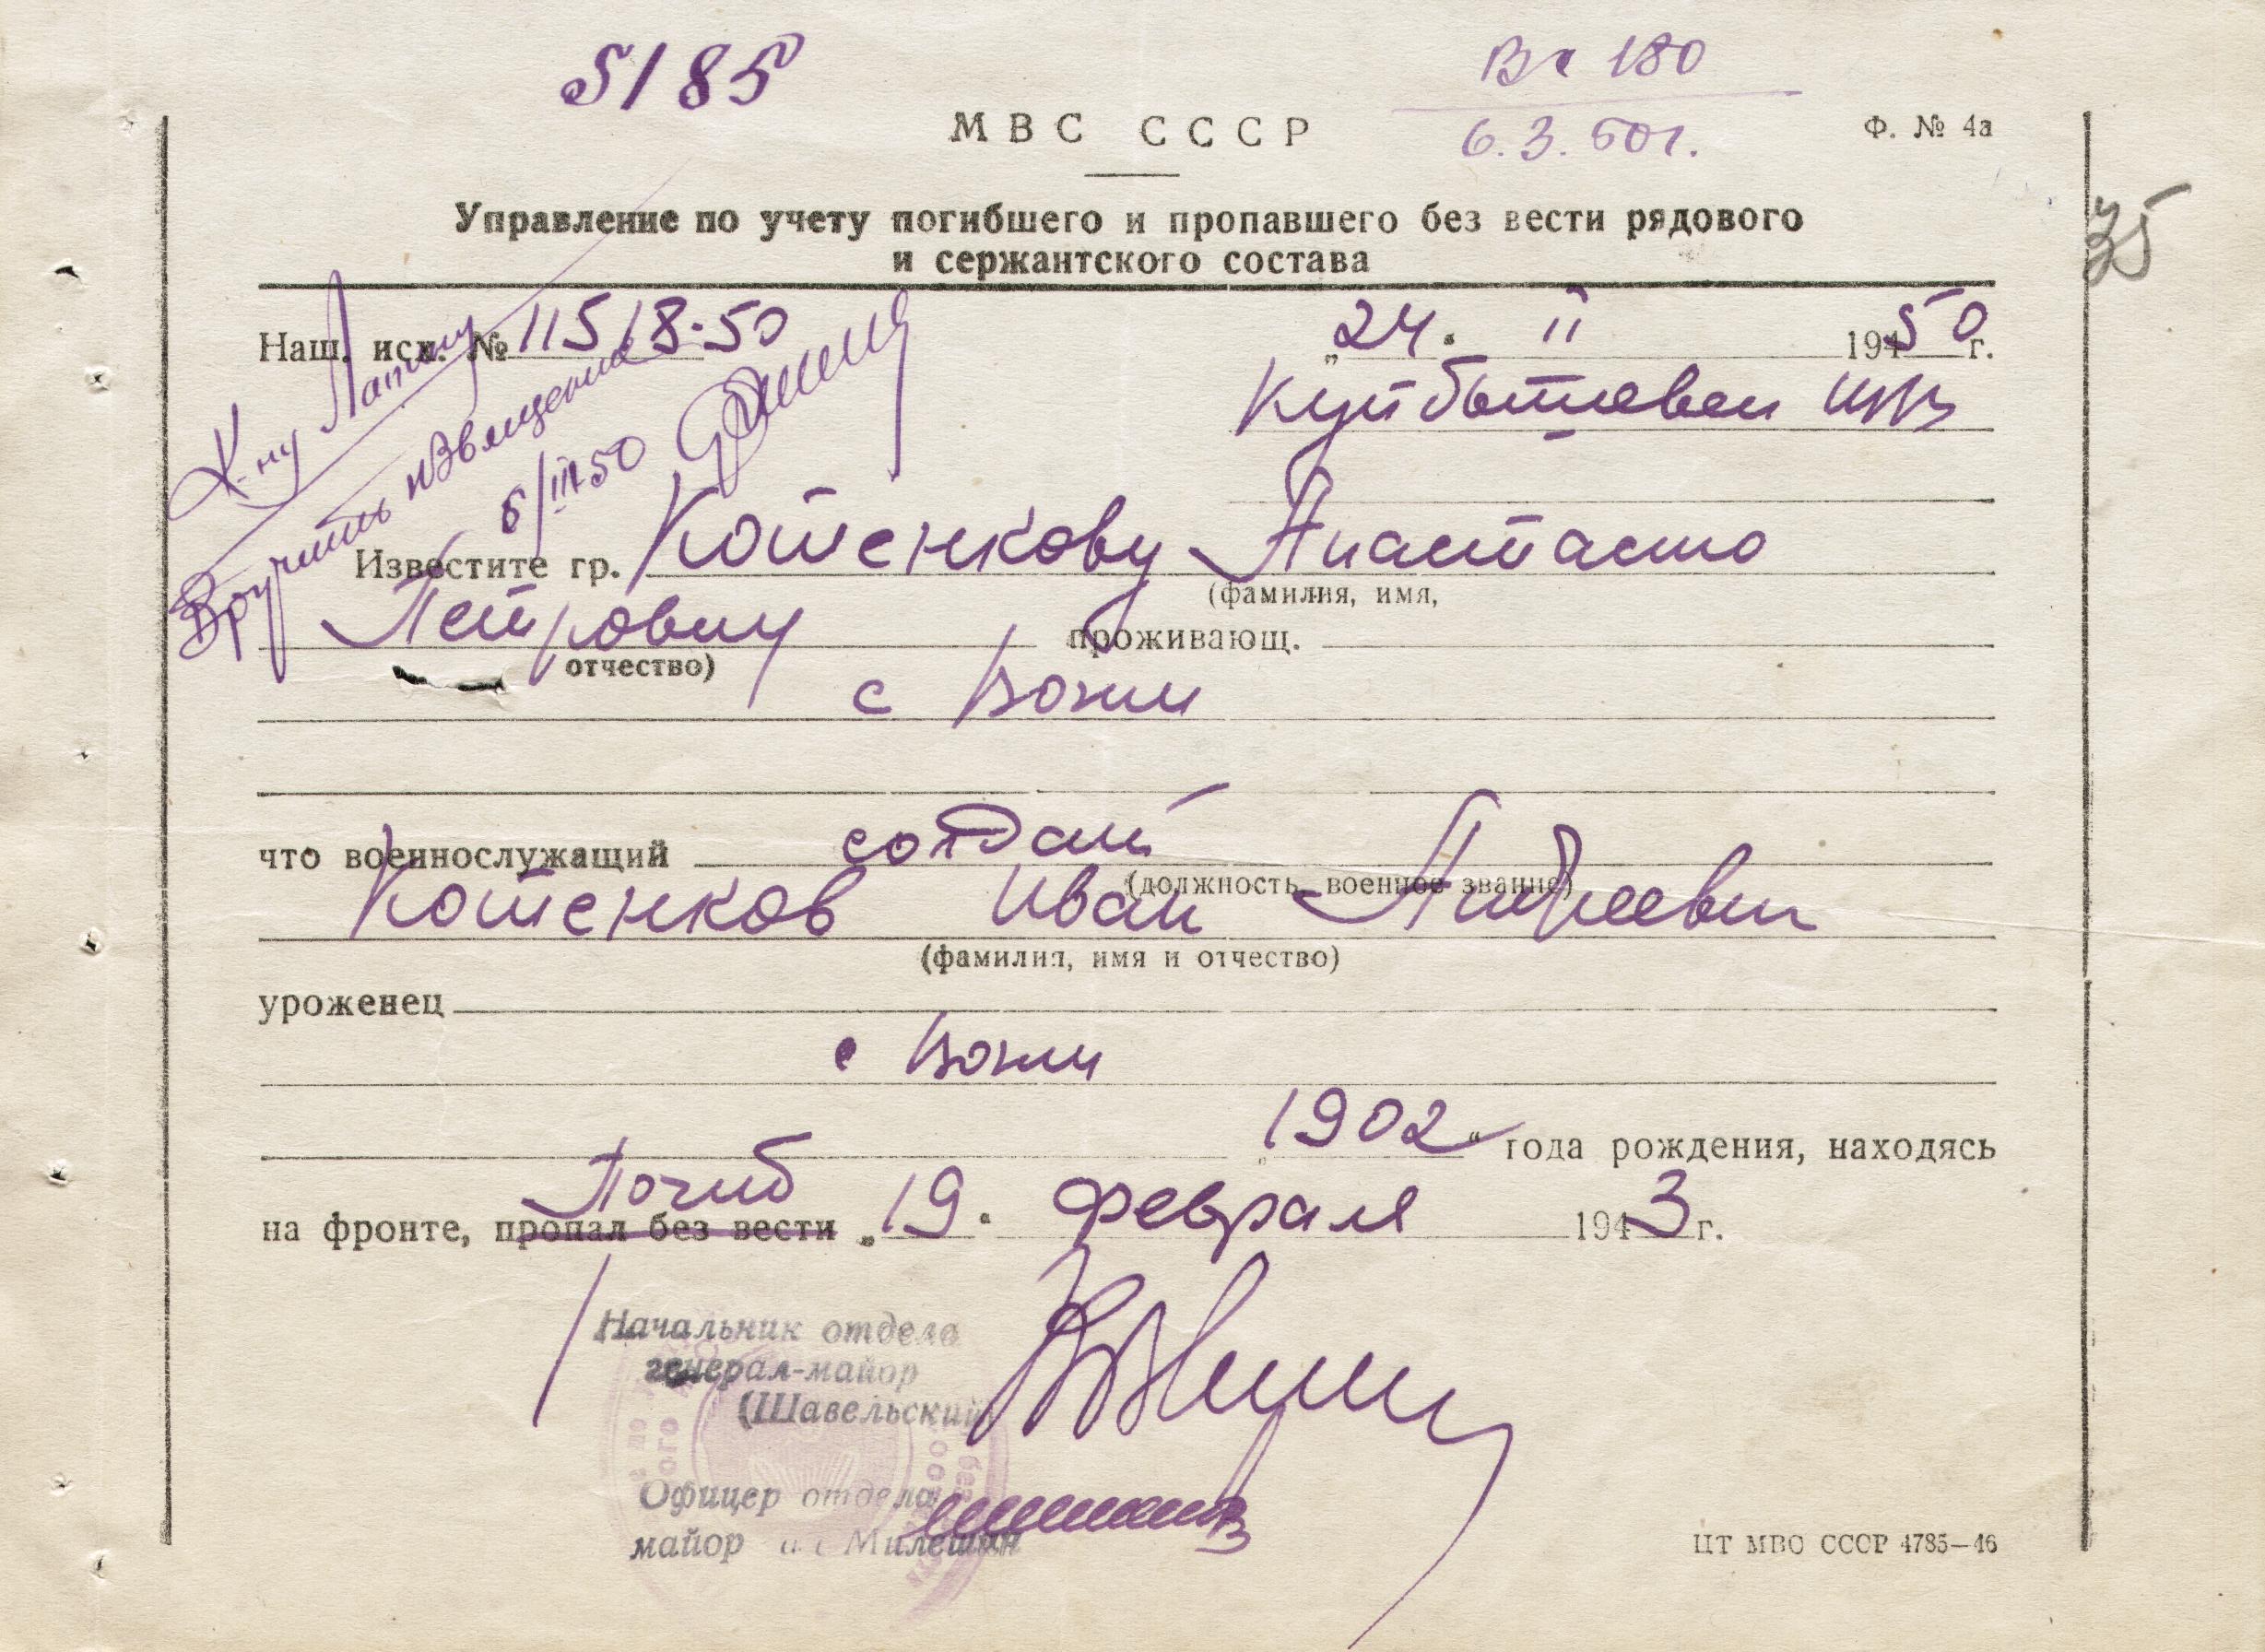 5185
Вх 180
6.3.50г.
МВС СССР
Ф. № 4а
35
Управление по учету погибшего и пропавшего без вести рядового
и сержантского состава
Наш. исх. № 11518-50
„24. II 1950 г.
Куйбышевский
К-ну Лапину
Вручить извещение
6/III 50
Известите гр. Котенкову Анастасию
(фамилия, имя,
Петровну проживающ.
отчество)
с
что военнослужащий солдат
(должность, военное звание)
Котенков Иван Андреевич
(фамилия, имя и отчество)
уроженец
с
„1902“ года рождения, находясь
Погиб
на фронте, пропал без вести „19. февраля 1943 г.
Начальник отдела
генерал-майор
(Шавельский)
Офицер отдела
майор а/с Милешин
ЦТ МВО СССР 4785—46